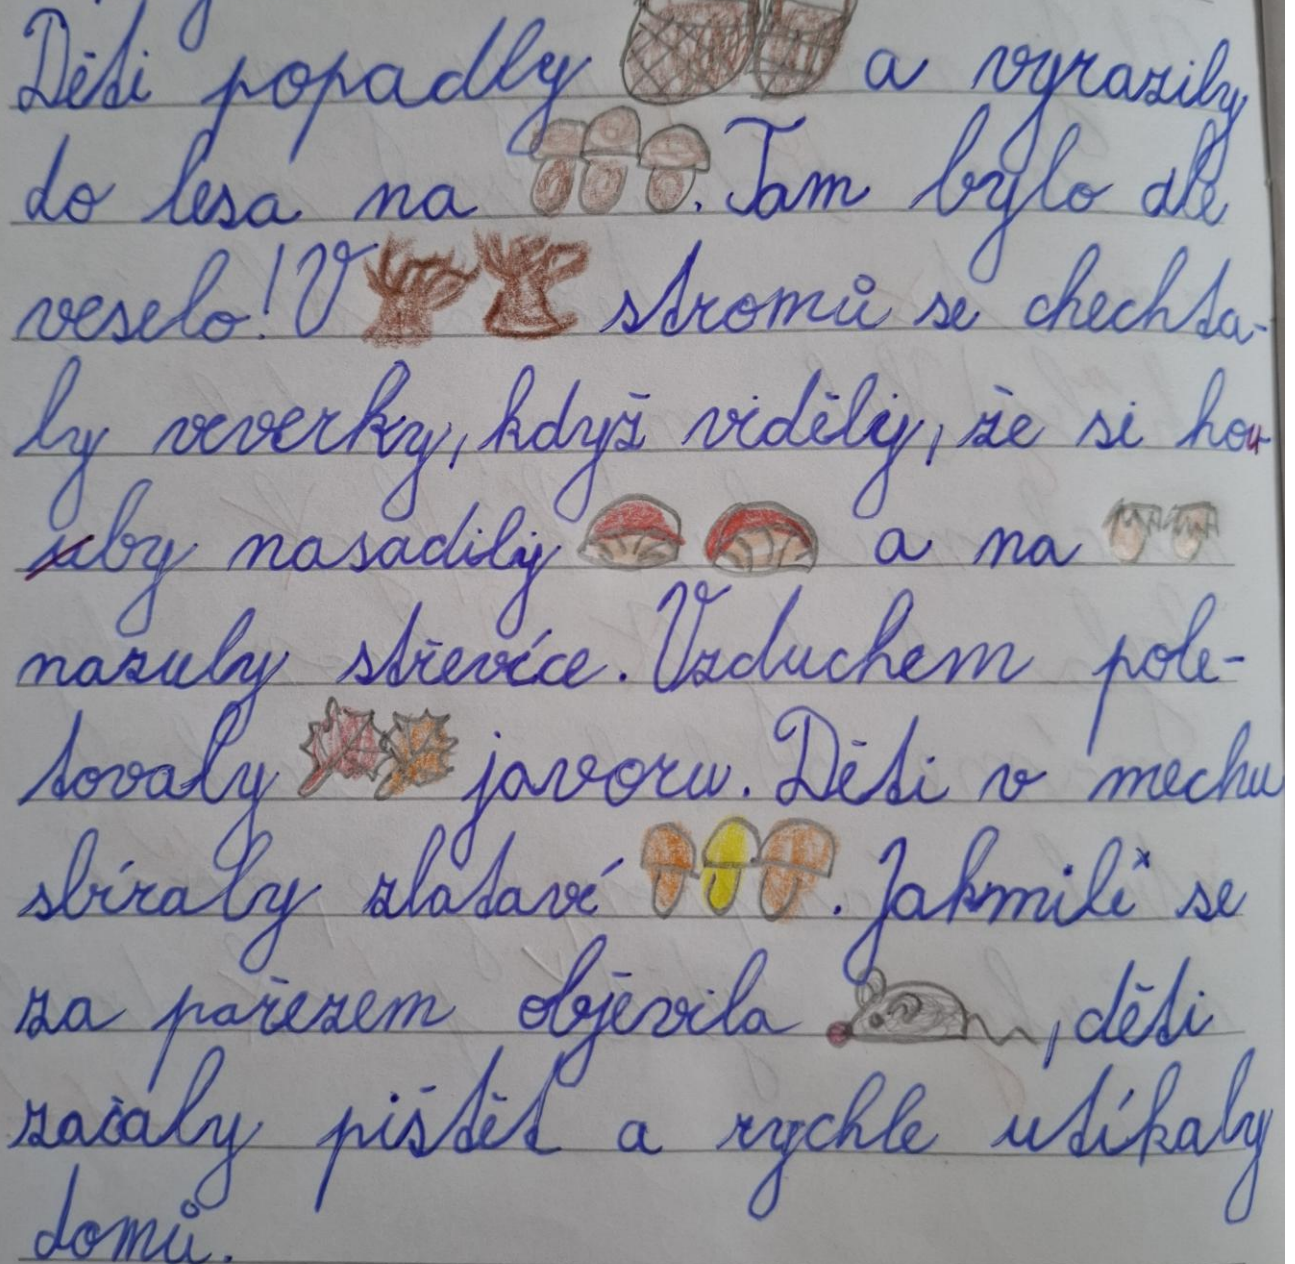 Děti popadly a vyrazily
do lesa na . Tam bylo ale
veselo! V stromů se chechta-
ly veverky, když viděly, že si hou-
by nasadily a na
nazuly střevíce. Vzduchem pole-
tovaly javoru. Děti v mechu
sbíraly zlatavé . Jakmile se
za pařezem objevila , děti
začaly pištět a rychle utíkaly
domů.